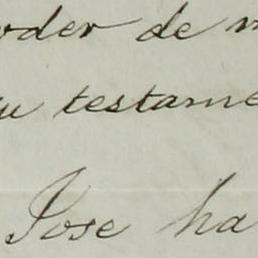 oder de m
u testame
Jose ha